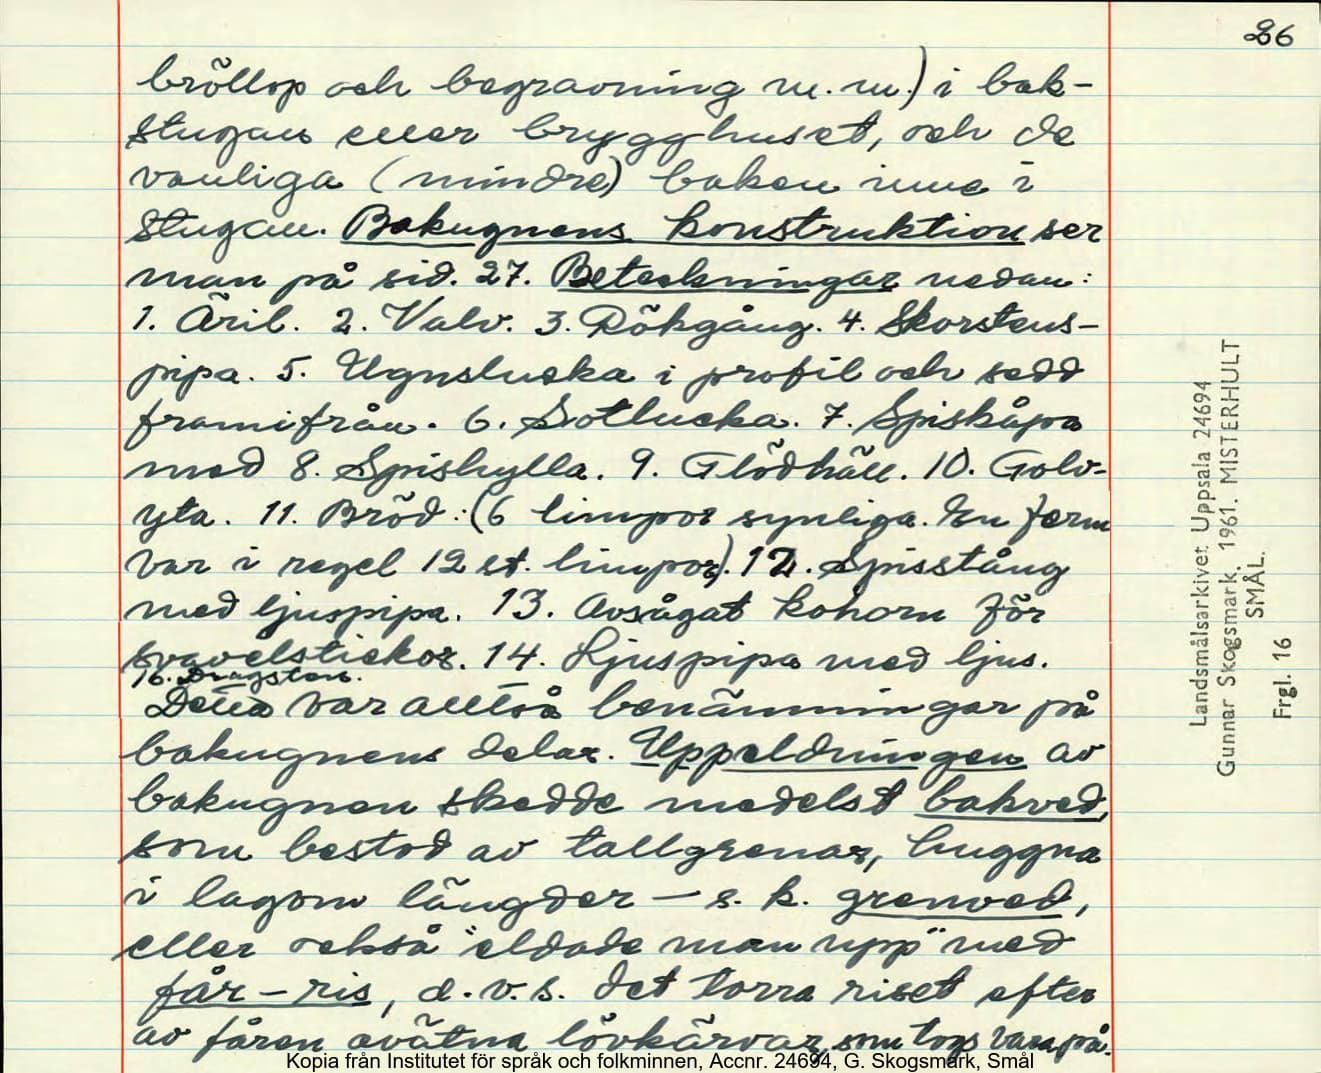 26
bröllop och begravning m.m.) i bak-
stugan eller brygghuset, och de
vanliga (mindre) baken inne i
stugan. Bakugnens konstruktion ser
man på sid. 27. Beteckningar nedan:
1. Äril. 2. Valv. 3. Rökgång. 4. Skorstens-
pipa. 5. Ugnslucka i profil och sedd
framifrån. 6. Sotlucka. 7. Spiskåpa
med 8. Spishylla. 9. Glödhäll. 10. Golv-
yta. 11. Bröd. (6 limpor synliga. En
var i regel 12 st. limpor). 12. Spisstång
med ljuspipa. 13. Avsågat kohorn för
svavelstickor. 14. Ljuspipa med ljus.
16. Dragsten.
Detta var alltså benämningar på
bakugnens delar. Uppeldningen av
bakugnen skedde medelst bakved,
som bestod av tallgrenar, huggna
i lagom längder – s. k. grenved,
eller också "eldade man upp" med
får-ris, d.v.s. det torra riset efter
av fåren avätna lövkärvar, som togs vara på.
Landsmålsarkivet Uppsala 24694
Gunnar Skogsmark. 1961. MISTERHULT
SMÅL.
Frgl. 16
Kopia från Institutet för språk och folkminnen, Accnr. 24694, G. Skogsmark, Smål